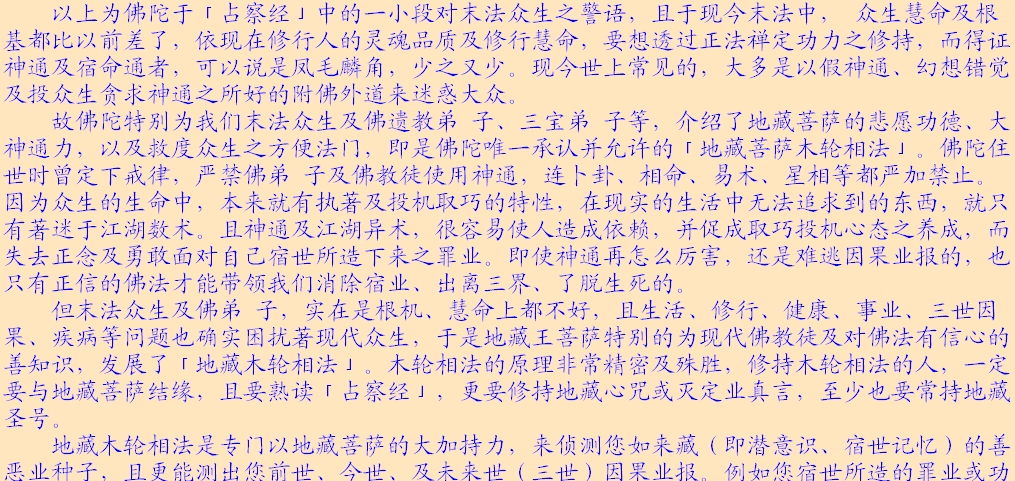 以上为佛陀于「占察经」中的一小段对末法众生之警语，且于现今末法中， 众生慧命及根
基都比以前差了，依现在修行人的灵魂品质及修行慧命，要想透过正法禅定功力之修持，而得证
神通及宿命通者，可以说是凤毛麟角，少之又少。现今世上常见的，大多是以假神通、幻想错觉
及投众生贪求神通之所好的附佛外道来迷惑大众。
故佛陀特别为我们末法众生及佛遗教弟 子、三宝弟 子等，介绍了地藏菩萨的悲愿功德、大
神通力，以及救度众生之方便法门，即是佛陀唯一承认并允许的「地藏菩萨木轮相法」。佛陀住
世时曾定下戒律，严禁佛弟 子及佛教徒使用神通，连卜卦、相命、易术、星相等都严加禁止。
因为众生的生命中，本来就有执著及投机取巧的特性，在现实的生活中无法追求到的东西，就只
有著迷于江湖数术。且神通及江湖异术，很容易使人造成依赖，并促成取巧投机心态之养成，而
失去正念及勇敢面对自己宿世所造下来之罪业。即使神通再怎么厉害，还是难逃因果业报的，也
只有正信的佛法才能带领我们消除宿业、出离三界、了脱生死的。
但末法众生及佛弟 子，实在是根机、慧命上都不好，且生活、修行、健康、事业、三世因
果、疾病等问题也确实困扰著现代众生，于是地藏王菩萨特别的为现代佛教徒及对佛法有信心的
善知识，发展了「地藏木轮相法」。木轮相法的原理非常精密及殊胜，修持木轮相法的人，一定
要与地藏菩萨结缘，且要熟读「占察经」，更要修持地藏心咒或灭定业真言，至少也要常持地藏
圣号。
地藏木轮相法是专门以地藏菩萨的大加持力，来侦测您如来藏（即潜意识、宿世记忆）的善
恶业种子，且更能测出您前世、今世、及未来世（三世）因果业报。例如您宿世所造的罪业或功